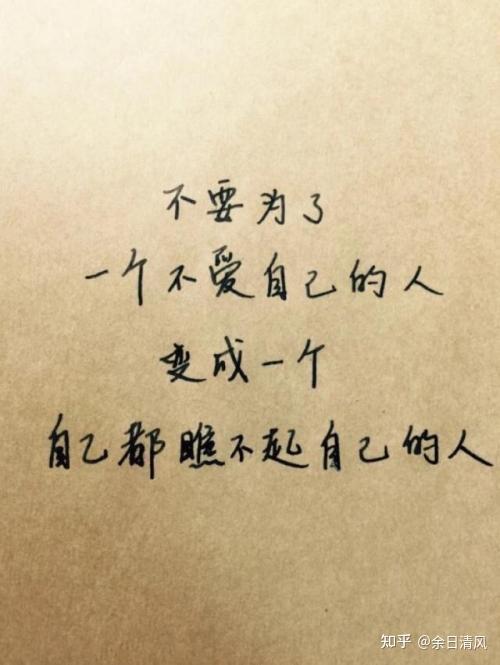 不要为了
一个不爱自己的人
变成一个
自己都瞧不起自己的人
知乎 @余日清风